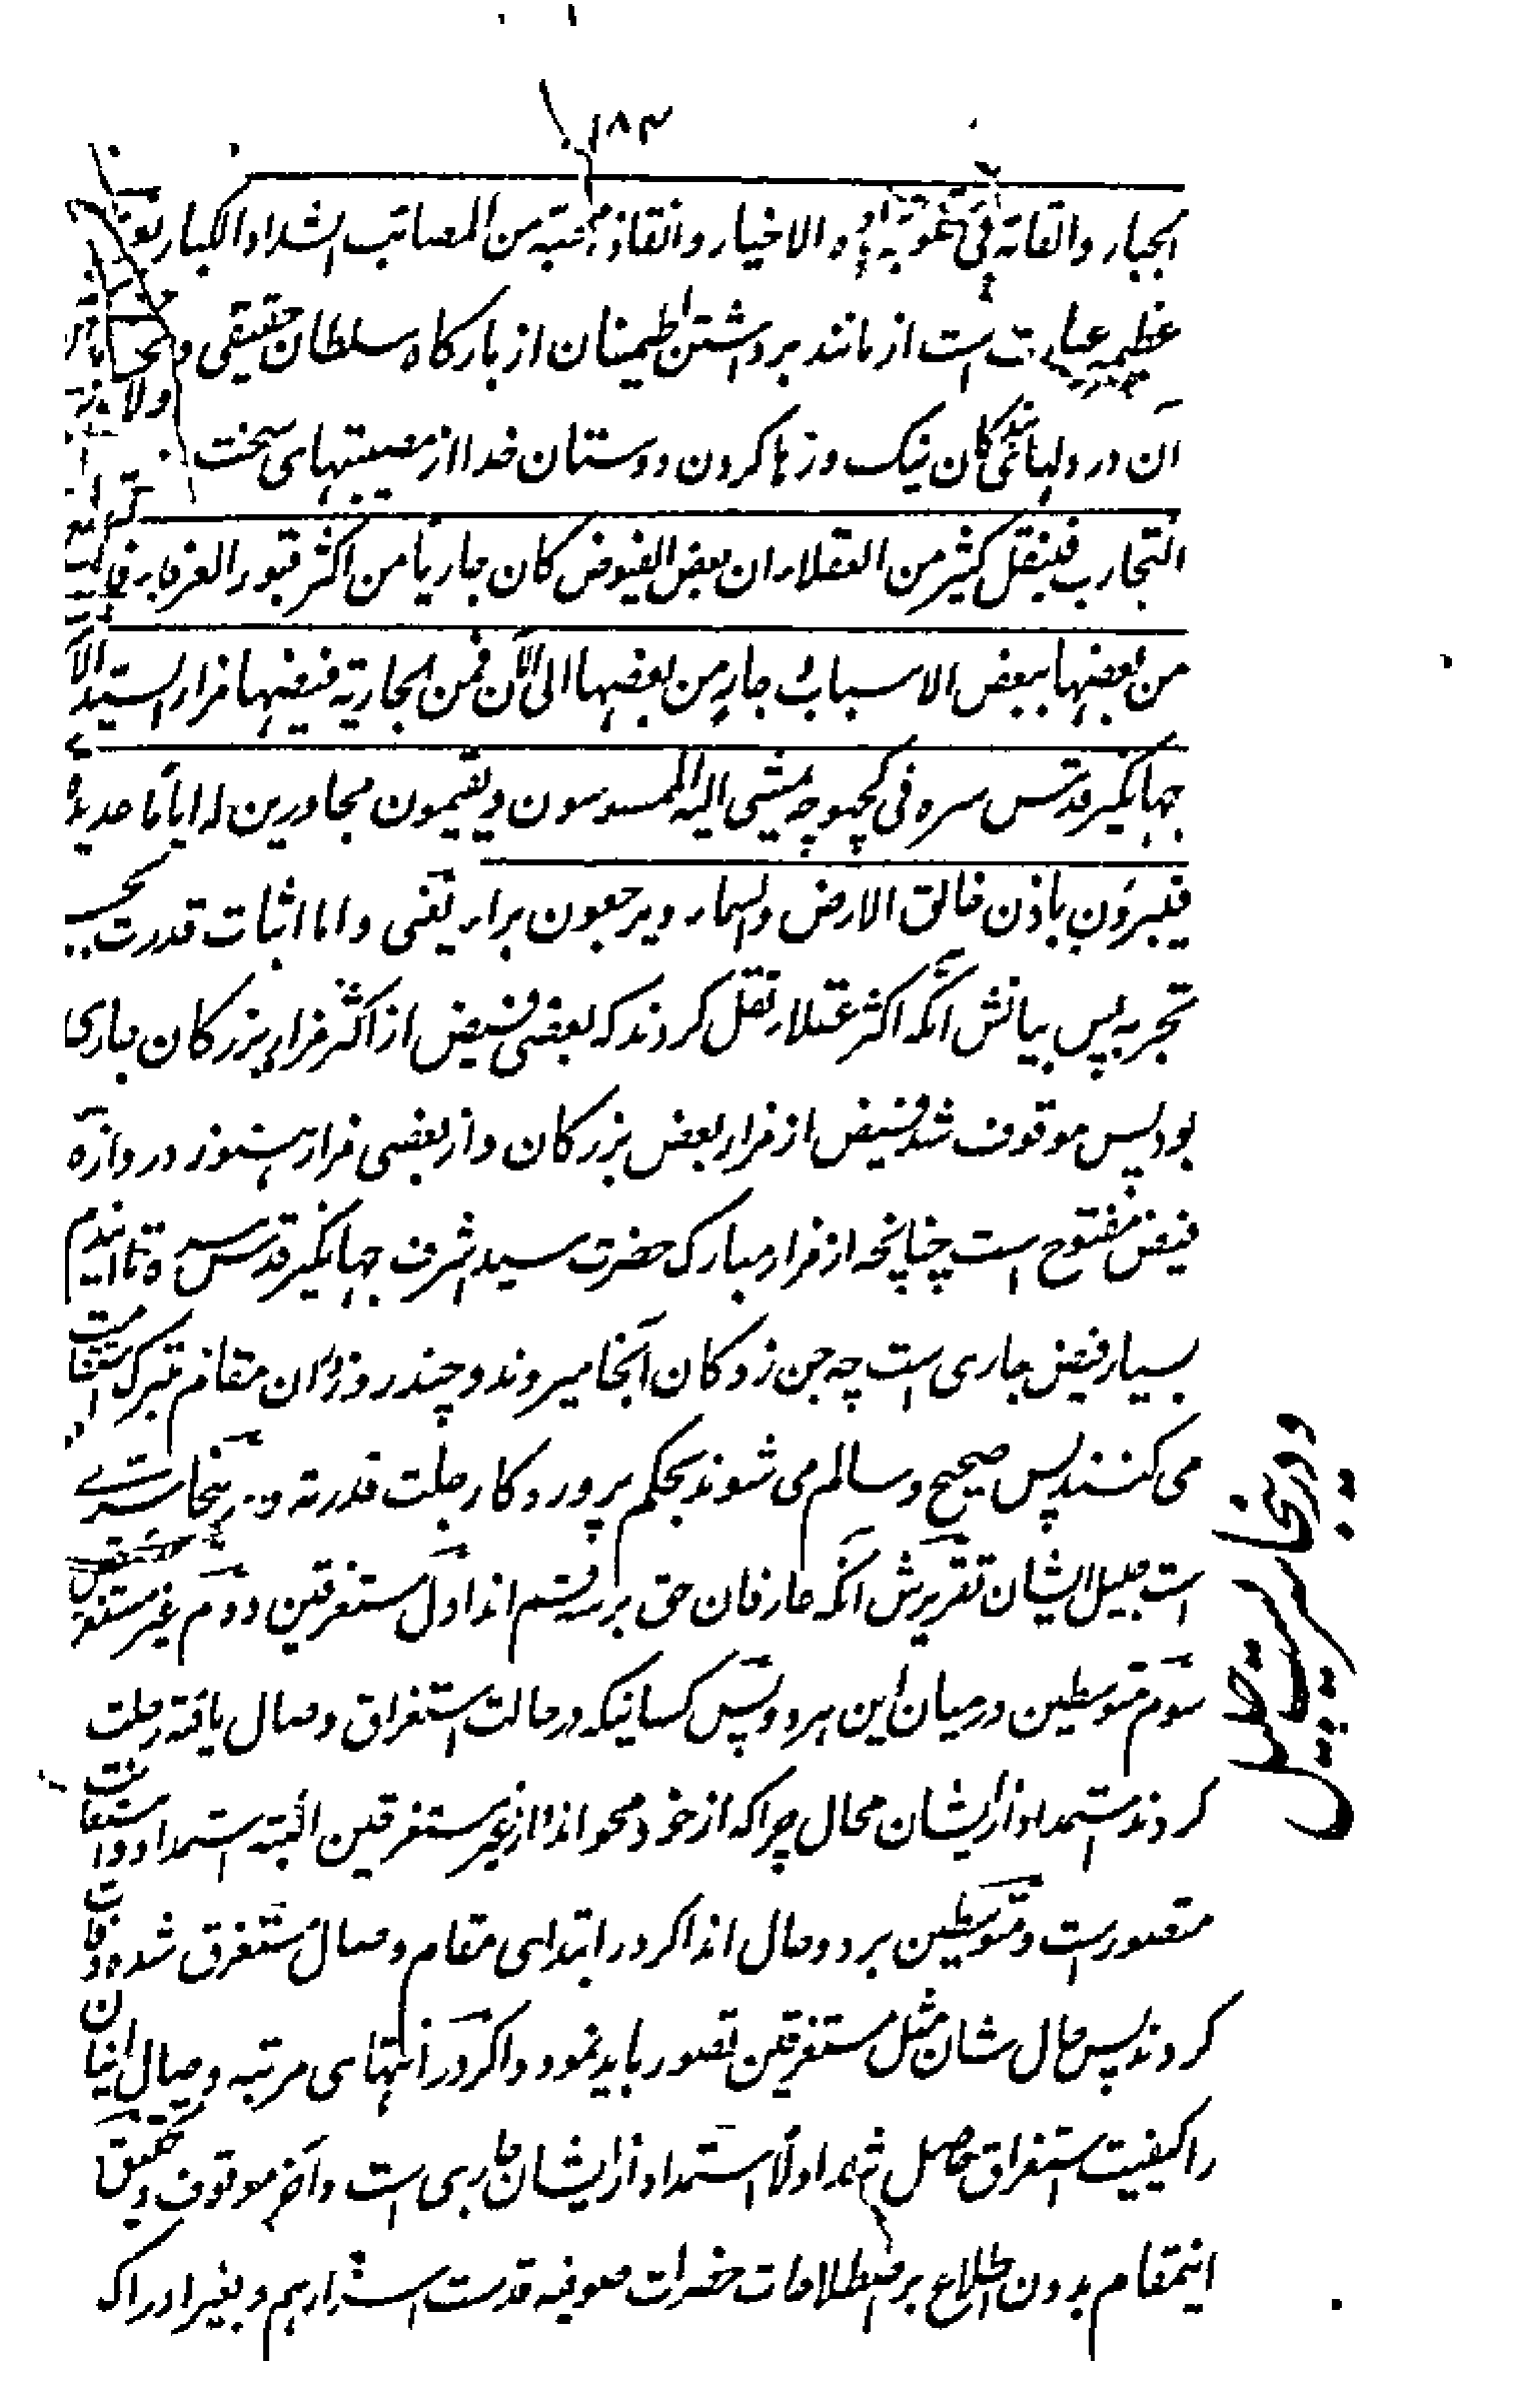 ۱۸۳
الجبار والقاته فی قلوبه الاخیار وانقاذ محبته من المصائب الشداد الکبار
عظیمه عبارت است از مانند برداشتن اطمینان از بارگاه سلطان حقیقی و
آن در دلهای نیک و رها کردن دوستان خدا از مصیبتهای سخت
التجارب فینقل کثیر من العقلاء ان بعض الفیوض کان جاریا من اکثر قبور العرفاء
من بعضها ببعض الاسباب و جار من بعضها الی الآن فمن الجاریة فیضها مزار السید
جهانگیر قدس سره فی کچهوچه یمشی الیه الممسوسون و یقیمون مجاورین له ایاما عدیدة
فیبرؤن باذن خالق الارض والسماء ویرجعون براء یعنی و اما اثبات قدرت بحسب
تجربه پس بیانش آنکه اکثر عقلاء نقل کردند که بعضی فیض از اکثر مزار بزرگان جاری
بود پس موقوف شد فیض از مزار بعض بزرگان و از بعضی مزار هنوز دروازه
فیض مفتوح است چنانچه از مزار مبارک حضرت سید اشرف جهانگیر قدس سره تا ایندم
بسیار فیض جاری است چه جن زدگان آنجا میروند و چند روز در آن مقام متبرک استقامت
می کنند پس صحیح و سالم می شوند بحکم پروردگار جلت قدرته و درینجا سرے
است جلیل الشان تقریرش آنکه عارفان حق بر سه قسم اند اول مستغرقین دوم غیر مستغرقین
سوم متوسطین درمیان این هر دو پس کسانیکه در حالت استغراق وصال یافته رحلت
کردند استمداد از ایشان محال چراکه از خود محو اند و از غیر مستغرقین البته استمداد و استعانت
متصور ست و متوسطین بر دو حال اند اگر در ابتدای مقام وصال مستغرق شده وفات
کردند پس حال شان مثل مستغرقین تصور باید نمود و اگر در انتهای مرتبه وصال اینان
را کیفیت استغراق حاصل شد اولا استمداد از ایشان جاری است و آخر موقوف و تحقیق
اینمقام بدون اطلاع بر اصطلاحات حضرات صوفیه قدست اسرارهم و بغیر ادراک